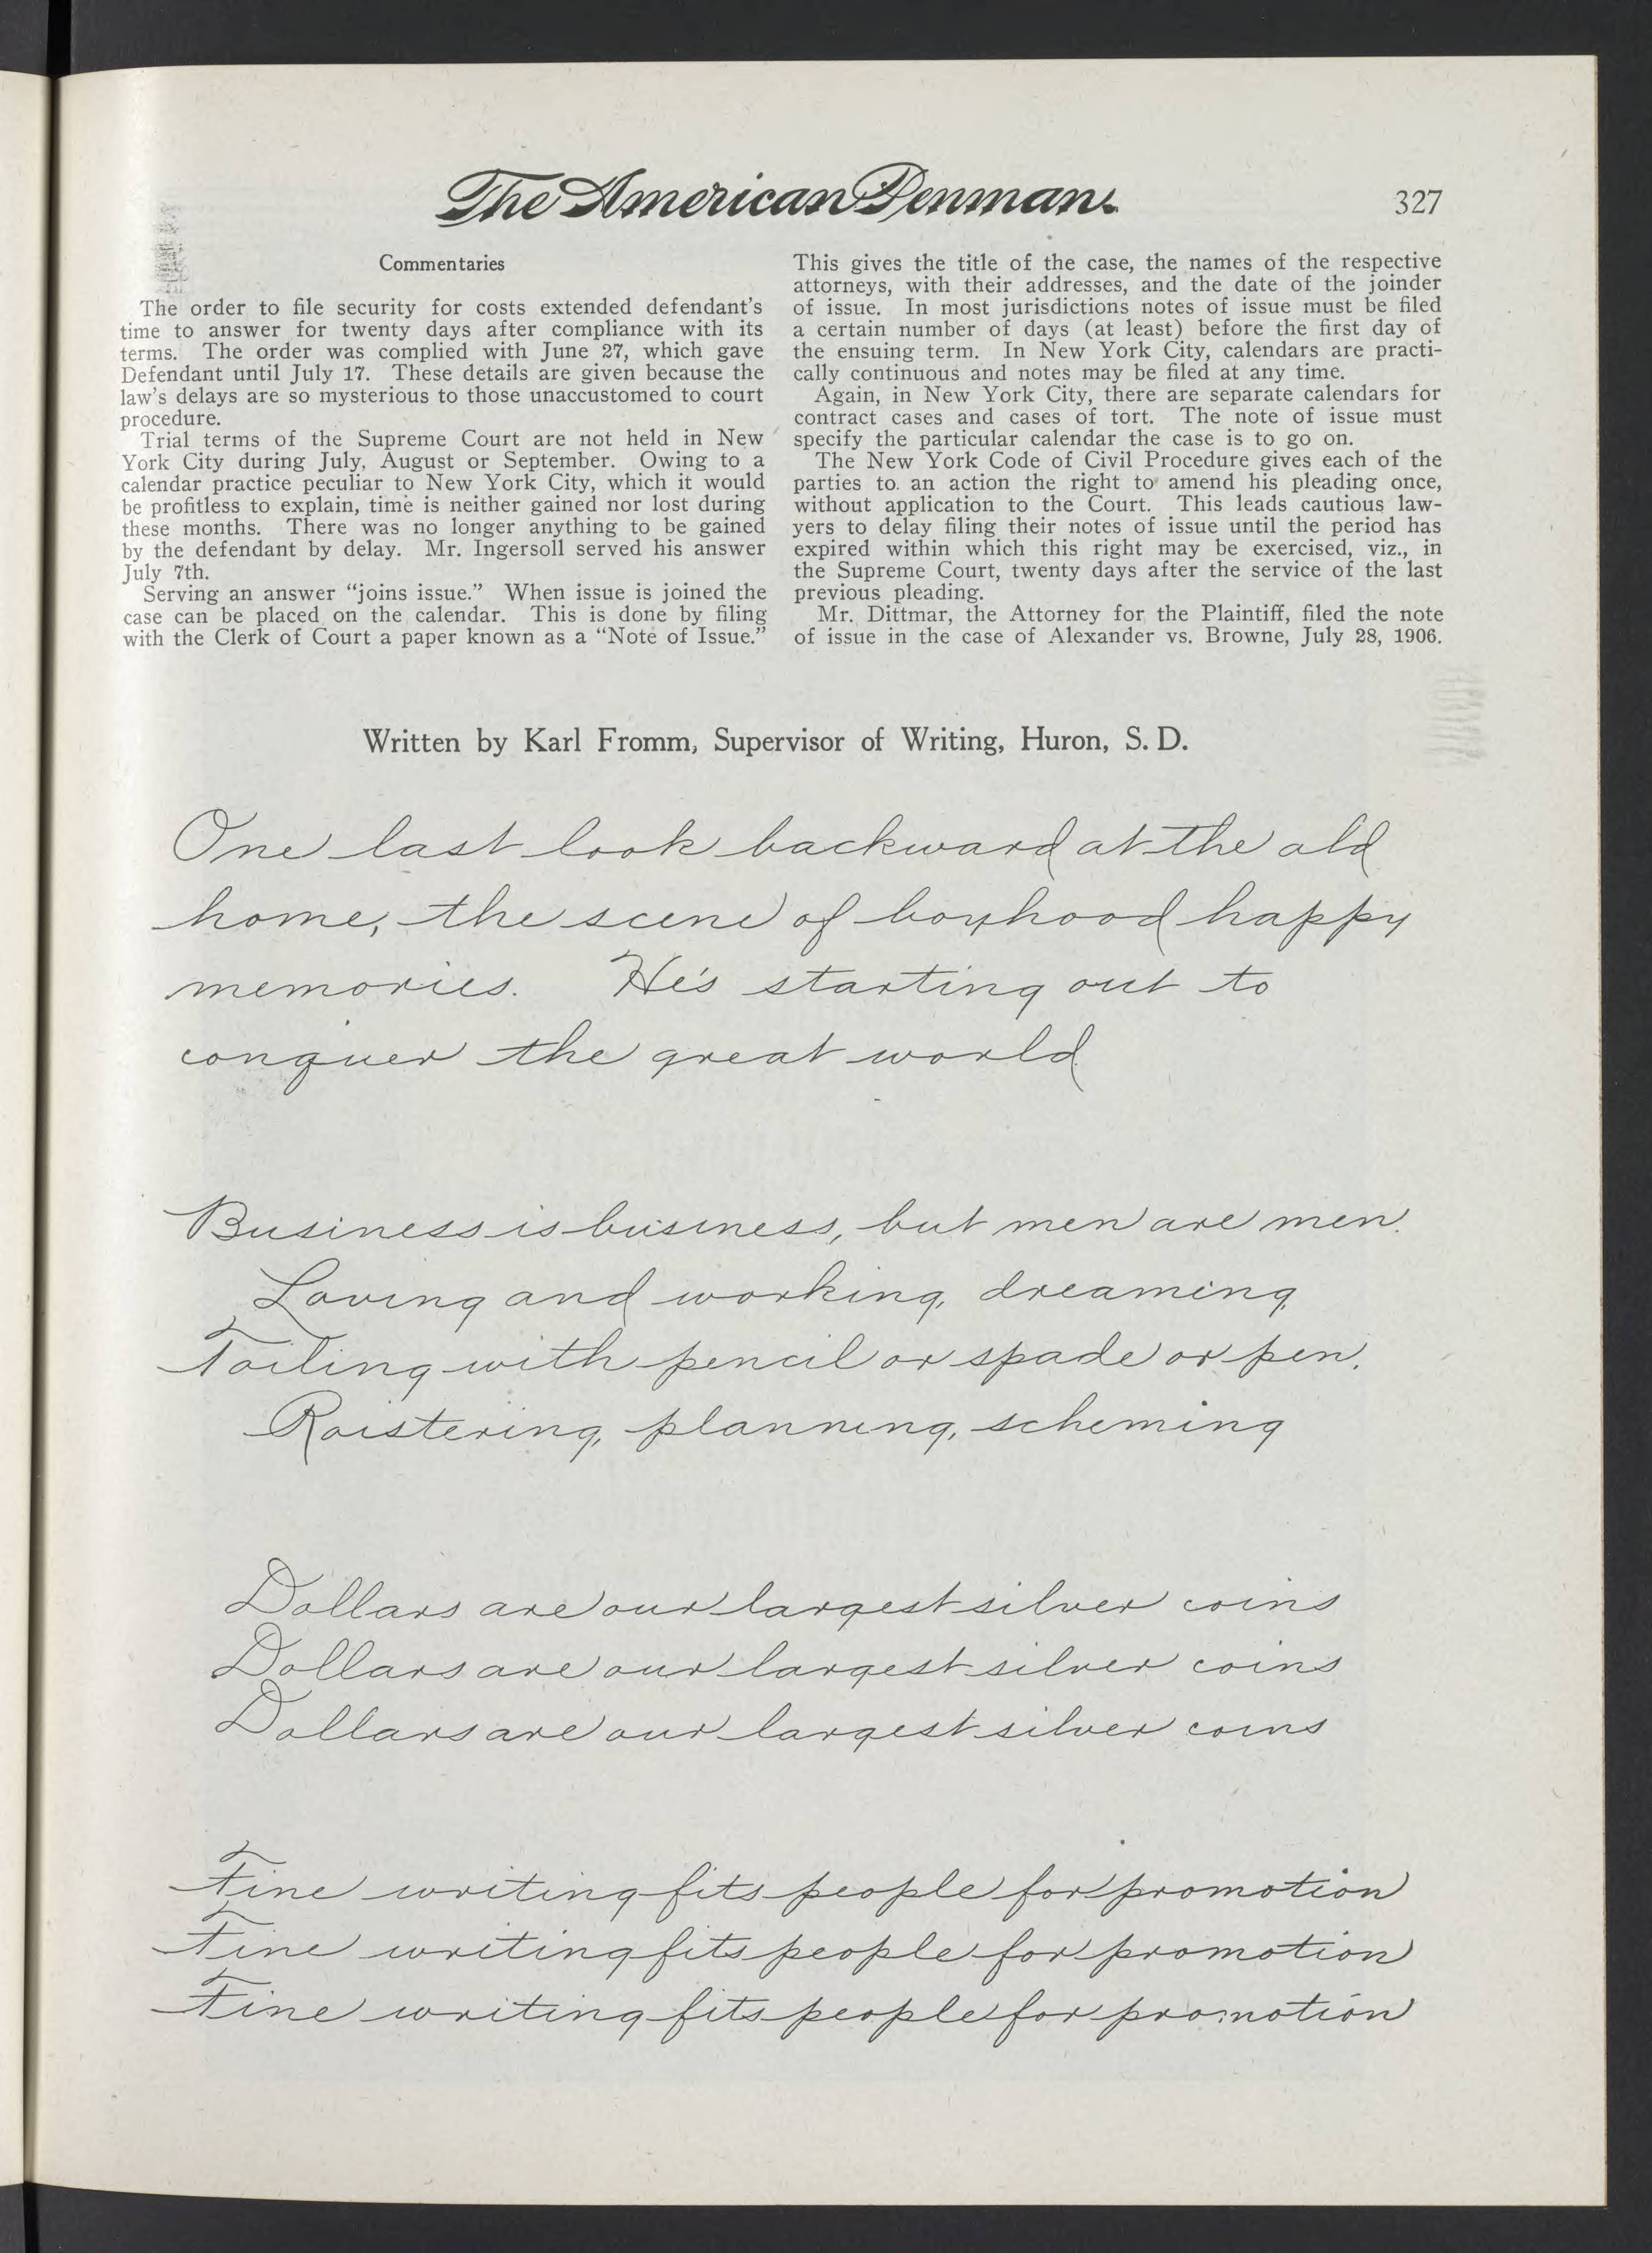 The American Penman
327
Commentaries
The order to file security for costs extended defendant's
time to answer for twenty days after compliance with its
terms. The order was complied with June 27, which gave
Defendant until July 17. These details are given because the
law's delays are so mysterious to those unaccustomed to court
procedure.
Trial terms of the Supreme Court are not held in New
York City during July, August or September. Owing to a
calendar practice peculiar to New York City, which it would
be profitless to explain, time is neither gained nor lost during
these months. There was no longer anything to be gained
by the defendant by delay. Mr. Ingersoll served his answer
July 7th.
Serving an answer "joins issue." When issue is joined the
case can be placed on the calendar. This is done by filing
with the Clerk of Court a paper known as a "Note of Issue."
This gives the title of the case, the names of the respective
attorneys, with their addresses, and the date of the joinder
of issue. In most jurisdictions notes of issue must be filed
a certain number of days (at least) before the first day of
the ensuing term. In New York City, calendars are practi-
cally continuous and notes may be filed at any time.
Again, in New York City, there are separate calendars for
contract cases and cases of tort. The note of issue must
specify the particular calendar the case is to go on.
The New York Code of Civil Procedure gives each of the
parties to an action the right to amend his pleading once,
without application to the Court. This leads cautious law-
yers to delay filing their notes of issue until the period has
expired within which this right may be exercised, viz., in
the Supreme Court, twenty days after the service of the last
previous pleading.
Mr. Dittmar, the Attorney for the Plaintiff, filed the note
of issue in the case of Alexander vs. Browne, July 28, 1906.
Written by Karl Fromm, Supervisor of Writing, Huron, S. D.
One last look backward at the old
home, the scene of boyhood happy
memories. He's starting out to
conquer the great world.
Business is business, but men are men.
Loving and working, dreaming,
Toiling with pencil or spade or pen,
Roistering, planning, scheming
Dollars are our largest silver coins
Dollars are our largest silver coins
Dollars are our largest silver coins
Fine writing fits people for promotion
Fine writing fits people for promotion
Fine writing fits people for promotion